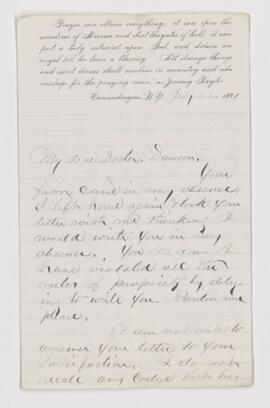 "Prayer can obtain everything; it can open the
windows of Heaven and shut the gates of hell; it can
put a holy restraint upon God, and detain an
angel till he leave a blessing. All strange things
and secret decrees shall combine in ministry and ad-
vantage for the praying man." — Jeremy Taylor.
Canandaigua, N.Y. July 22 1881
My dear Doctor Dawson,
Your
favor came in my absence
I left home again & took your
letter with me thinking I
would write you in my
absence. You see how I
have violated all the
rules of propriety by delay-
ing to write you. Pardon me
please.
I am not able to
answer your letter to your
satisfaction. I do not
recall any that has